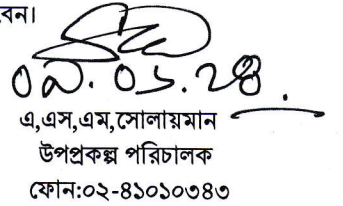 বেন।
০৯.০১.২৪
এ,এস,এম,সোলায়মান
উপপ্রকল্প পরিচালক
ফোন:০২-৪১০১০৩৪৩